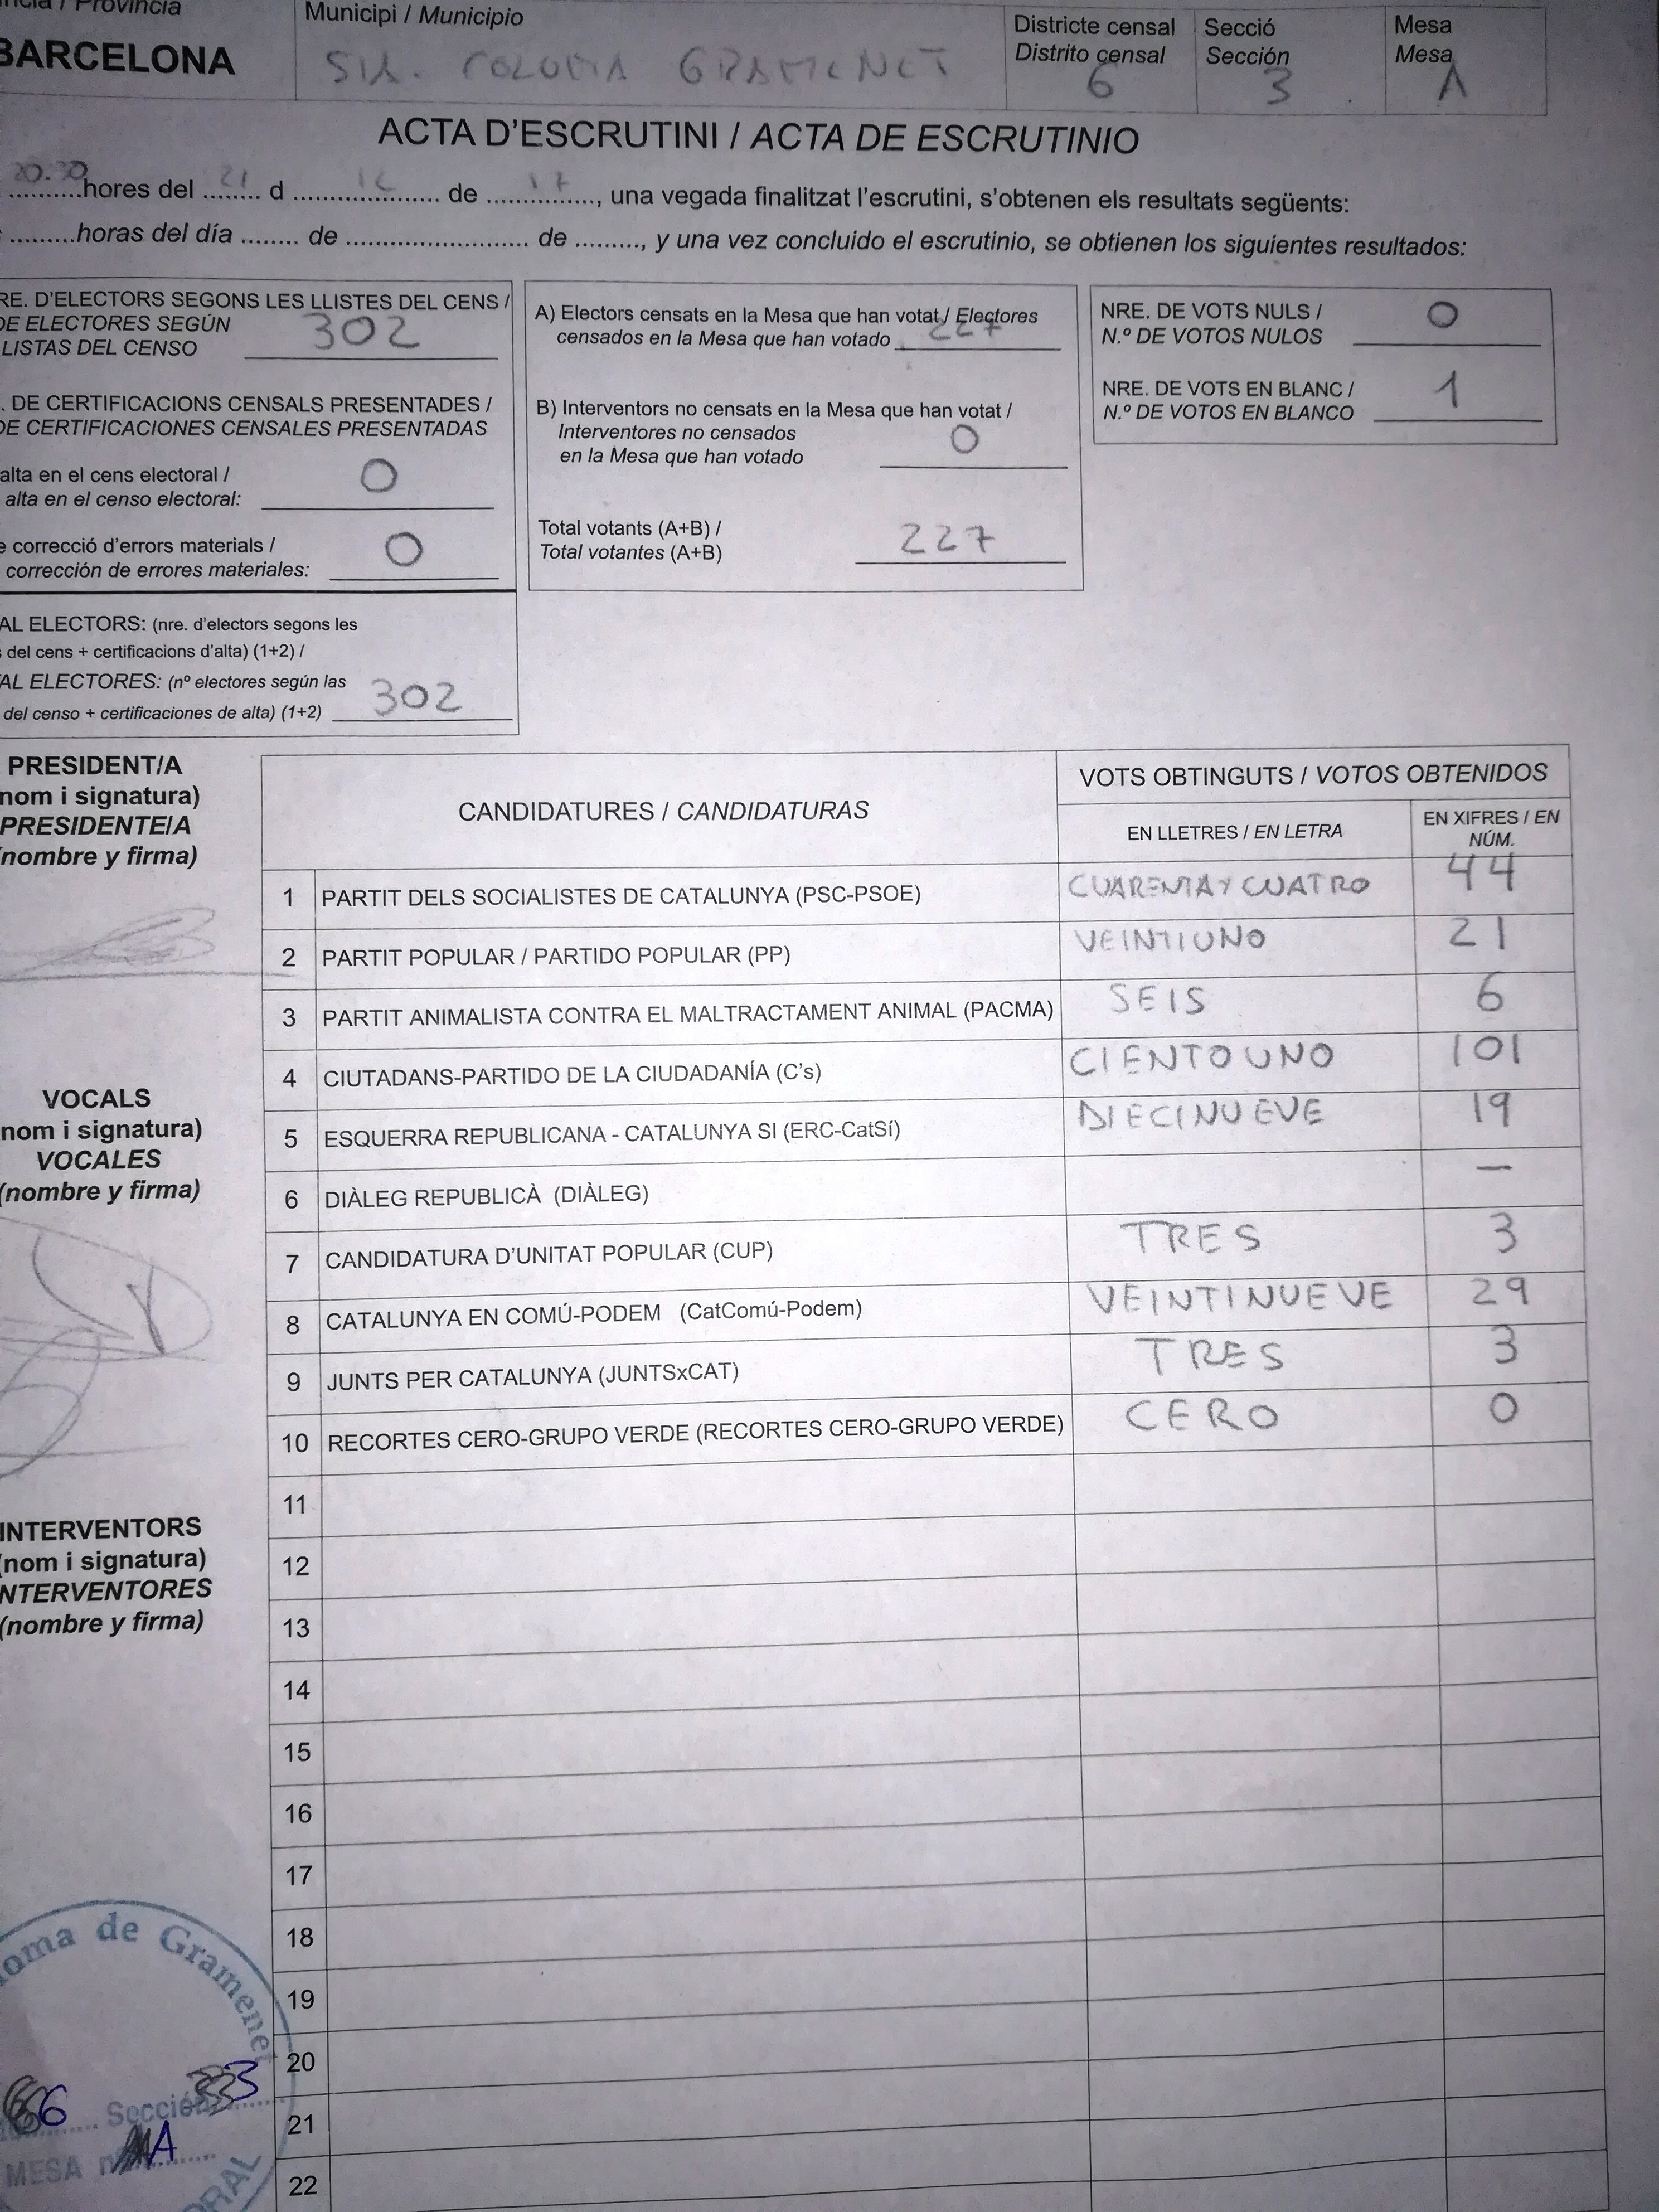 Província / Provincia
BARCELONA
Municipi / Municipio
STA. COLOMA GRAMENET
Districte censal
Distrito censal
6
Secció
Sección
3
Mesa
Mesa
A
ACTA D'ESCRUTINI / ACTA DE ESCRUTINIO
20:30 hores del 21 d 12 de 17, una vegada finalitzat l'escrutini, s'obtenen els resultats següents:
horas del día ........ de .......................... de ........., y una vez concluido el escrutinio, se obtienen los siguientes resultados:
RE. D'ELECTORS SEGONS LES LLISTES DEL CENS /
DE ELECTORES SEGÚN
LISTAS DEL CENSO 302
. DE CERTIFICACIONS CENSALS PRESENTADES /
DE CERTIFICACIONES CENSALES PRESENTADAS
alta en el cens electoral /
alta en el censo electoral: 0
e correcció d'errors materials /
corrección de errores materiales: 0
AL ELECTORS: (nre. d'electors segons les
s del cens + certificacions d'alta) (1+2) /
AL ELECTORES: (nº electores según las
del censo + certificaciones de alta) (1+2) 302
A) Electors censats en la Mesa que han votat / Electores
censados en la Mesa que han votado 227
B) Interventors no censats en la Mesa que han votat /
Interventores no censados
en la Mesa que han votado 0
Total votants (A+B) /
Total votantes (A+B) 227
NRE. DE VOTS NULS /
N.º DE VOTOS NULOS 0
NRE. DE VOTS EN BLANC /
N.º DE VOTOS EN BLANCO 1
PRESIDENT/A
(nom i signatura)
PRESIDENTE/A
(nombre y firma)
VOCALS
(nom i signatura)
VOCALES
(nombre y firma)
INTERVENTORS
(nom i signatura)
INTERVENTORES
(nombre y firma)
CANDIDATURES / CANDIDATURAS
VOTS OBTINGUTS / VOTOS OBTENIDOS
EN LLETRES / EN LETRA
EN XIFRES / EN
NÚM.
1 PARTIT DELS SOCIALISTES DE CATALUNYA (PSC-PSOE) CUARENTA Y CUATRO 44
2 PARTIT POPULAR / PARTIDO POPULAR (PP) VEINTIUNO 21
3 PARTIT ANIMALISTA CONTRA EL MALTRACTAMENT ANIMAL (PACMA) SEIS 6
4 CIUTADANS-PARTIDO DE LA CIUDADANÍA (C's) CIENTO UNO 101
5 ESQUERRA REPUBLICANA - CATALUNYA SI (ERC-CatSí) DIECINUEVE 19
6 DIÀLEG REPUBLICÀ (DIÀLEG) —
7 CANDIDATURA D'UNITAT POPULAR (CUP) TRES 3
8 CATALUNYA EN COMÚ-PODEM (CatComú-Podem) VEINTINUEVE 29
9 JUNTS PER CATALUNYA (JUNTSxCAT) TRES 3
10 RECORTES CERO-GRUPO VERDE (RECORTES CERO-GRUPO VERDE) CERO 0
11
12
13
14
15
16
17
18
19
20
21
22
oma de Gramenet
6 Sección 3
MESA A